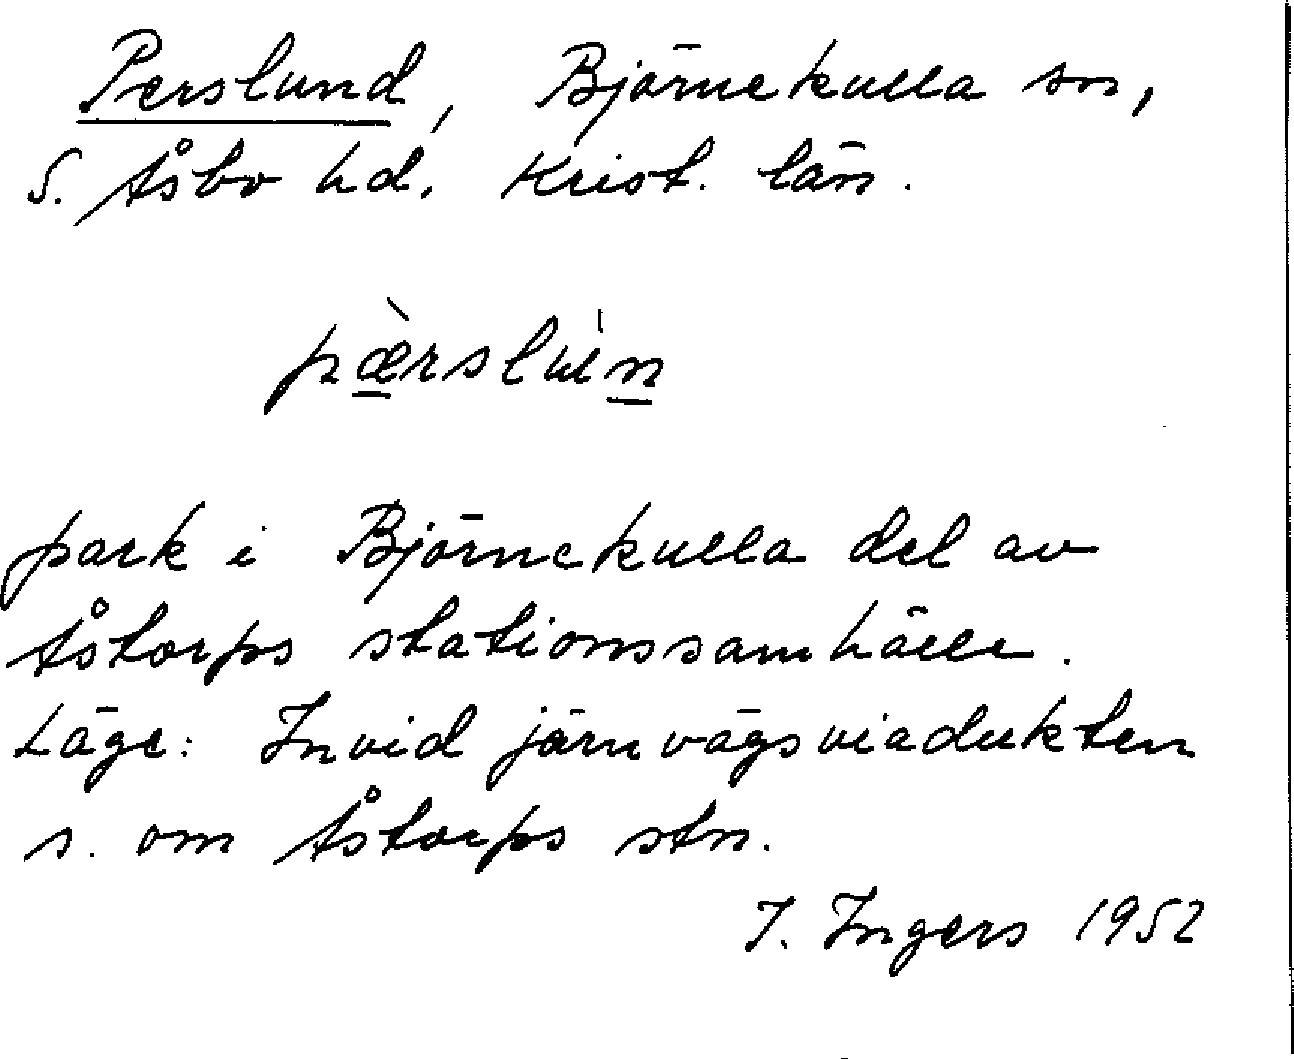 Perslund, Björnekulla sn,
S. Åsbo hd. Krist. län.
pæ̀rslu̍n
park i Björnekulla del av
Åstorps stationssamhälle.
Läge: Invid järnvägsviadukten
s. om Åstorps stn.
I. Ingers 1952